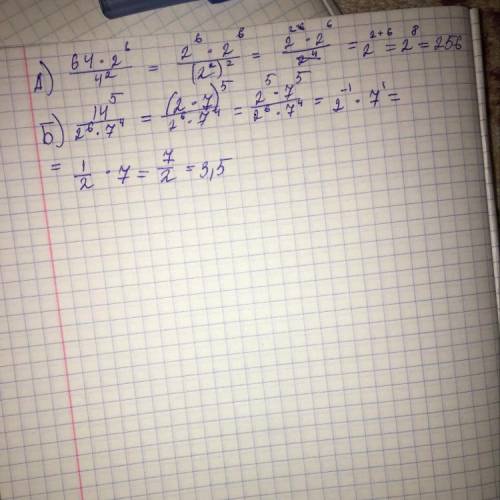 А) (64 · 2⁶)/4² = (2⁶ · 2⁶)/(2²)² = (2² · 2⁶)/2⁴ = 2²⁺⁶ = 2⁸ = 256
Б) 14⁵/(2⁶ · 7⁴) = (2 · 7)⁵/(2⁶ · 7⁴) = (2⁵ · 7⁵)/(2⁶ · 7⁴) = 2⁻¹ · 7¹ =
= 1/2 · 7 = 7/2 = 3,5